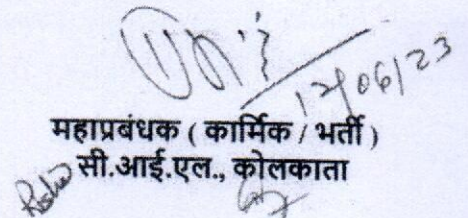 12/06/23
महाप्रबंधक ( कार्मिक / भर्ती )
सी.आई.एल., कोलकाता